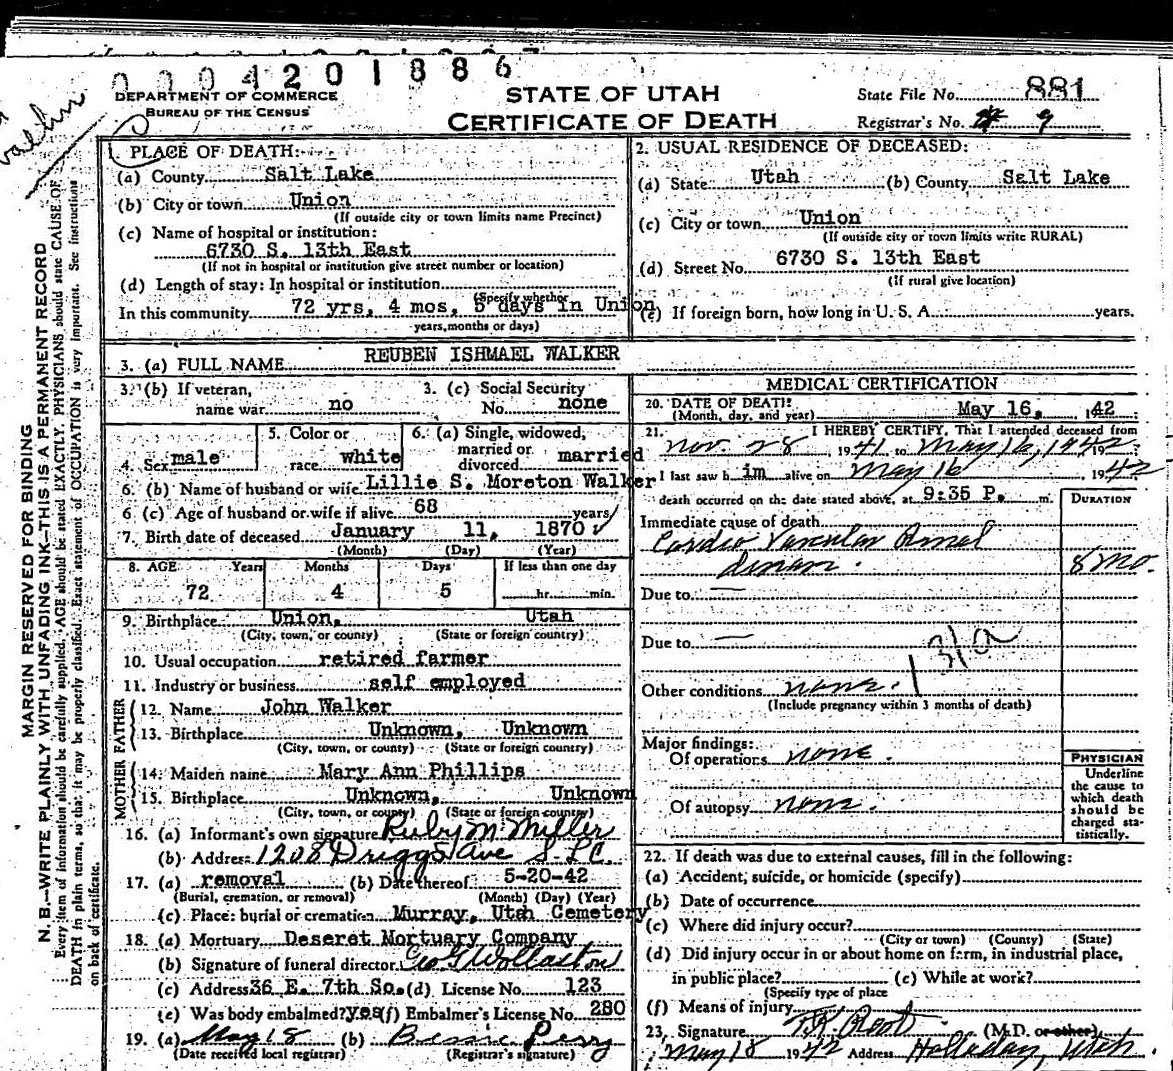 0004201886
DEPARTMENT OF COMMERCE
BUREAU OF THE CENSUS
STATE OF UTAH
CERTIFICATE OF DEATH
State File No. 881
Registrar's No. 9
MARGIN RESERVED FOR BINDING
N. B.—WRITE PLAINLY WITH UNFADING INK—THIS IS A PERMANENT RECORD
Every item of information should be carefully supplied. AGE should be stated EXACTLY. PHYSICIANS should state CAUSE OF
DEATH in plain terms, so that it may be properly classified. Exact statement of OCCUPATION is very important. See instructions
on back of certificate.
1. PLACE OF DEATH:
(a) County Salt Lake
(b) City or town Union
(If outside city or town limits name Precinct)
(c) Name of hospital or institution:
6730 S. 13th East
(If not in hospital or institution give street number or location)
(d) Length of stay: In hospital or institution
(Specify whether
In this community 72 yrs, 4 mos, 5 days in Union
years, months or days)
2. USUAL RESIDENCE OF DECEASED:
(a) State Utah (b) County Salt Lake
(c) City or town Union
(If outside city or town limits write RURAL)
(d) Street No. 6730 S. 13th East
(If rural give location)
(e) If foreign born, how long in U. S. A. years.
3. (a) FULL NAME REUBEN ISHMAEL WALKER
3. (b) If veteran,
name war no
3. (c) Social Security
No. none
4. Sex male
5. Color or
race white
6. (a) Single, widowed,
married or
divorced married
6. (b) Name of husband or wife Lillie S. Moreton Walker
6. (c) Age of husband or wife if alive 68 years
7. Birth date of deceased January 11, 1870
(Month) (Day) (Year)
8. AGE Years Months Days If less than one day
72 4 5 hr. min.
9. Birthplace Union, Utah
(City, town, or county) (State or foreign country)
10. Usual occupation retired farmer
11. Industry or business self employed
FATHER
12. Name John Walker
13. Birthplace Unknown, Unknown
(City, town, or county) (State or foreign country)
MOTHER
14. Maiden name Mary Ann Phillips
15. Birthplace Unknown, Unknown
(City, town, or county) (State or foreign country)
16. (a) Informant's own signature Ruby M. Miller
(b) Address 1208 Driggs Ave S.L.C.
17. (a) removal (b) Date thereof 5-20-42
(Burial, cremation, or removal) (Month) (Day) (Year)
(c) Place: burial or cremation Murray, Utah Cemetery
18. (a) Mortuary Deseret Mortuary Company
(b) Signature of funeral director Geo G Wollaston
(c) Address 36 E. 7th So. (d) License No. 123
(e) Was body embalmed? yes (f) Embalmer's License No. 280
19. (a) May 18 (b) Bessie Perry
(Date received local registrar) (Registrar's signature)
MEDICAL CERTIFICATION
20. DATE OF DEATH:
(Month, day, and year) May 16, 42
21. I HEREBY CERTIFY, That I attended deceased from
Nov. 28 1941 to May 16, 1942
I last saw him alive on May 16 1942
death occurred on the date stated above, at 9:35 P. m.
DURATION
Immediate cause of death
Cardio Vascular Renal
8 mo.
Due to —
Due to —
131a
Other conditions none.
(Include pregnancy within 3 months of death)
Major findings:
Of operations none.
Of autopsy none.
PHYSICIAN
Underline
the cause to
which death
should be
charged sta-
tistically.
22. If death was due to external causes, fill in the following:
(a) Accident, suicide, or homicide (specify)
(b) Date of occurrence
(c) Where did injury occur?
(City or town) (County) (State)
(d) Did injury occur in or about home on farm, in industrial place,
in public place? (e) While at work?
(Specify type of place
(f) Means of injury
23. Signature (M.D. or other)
May 18 1942 Address Holladay, Utah.